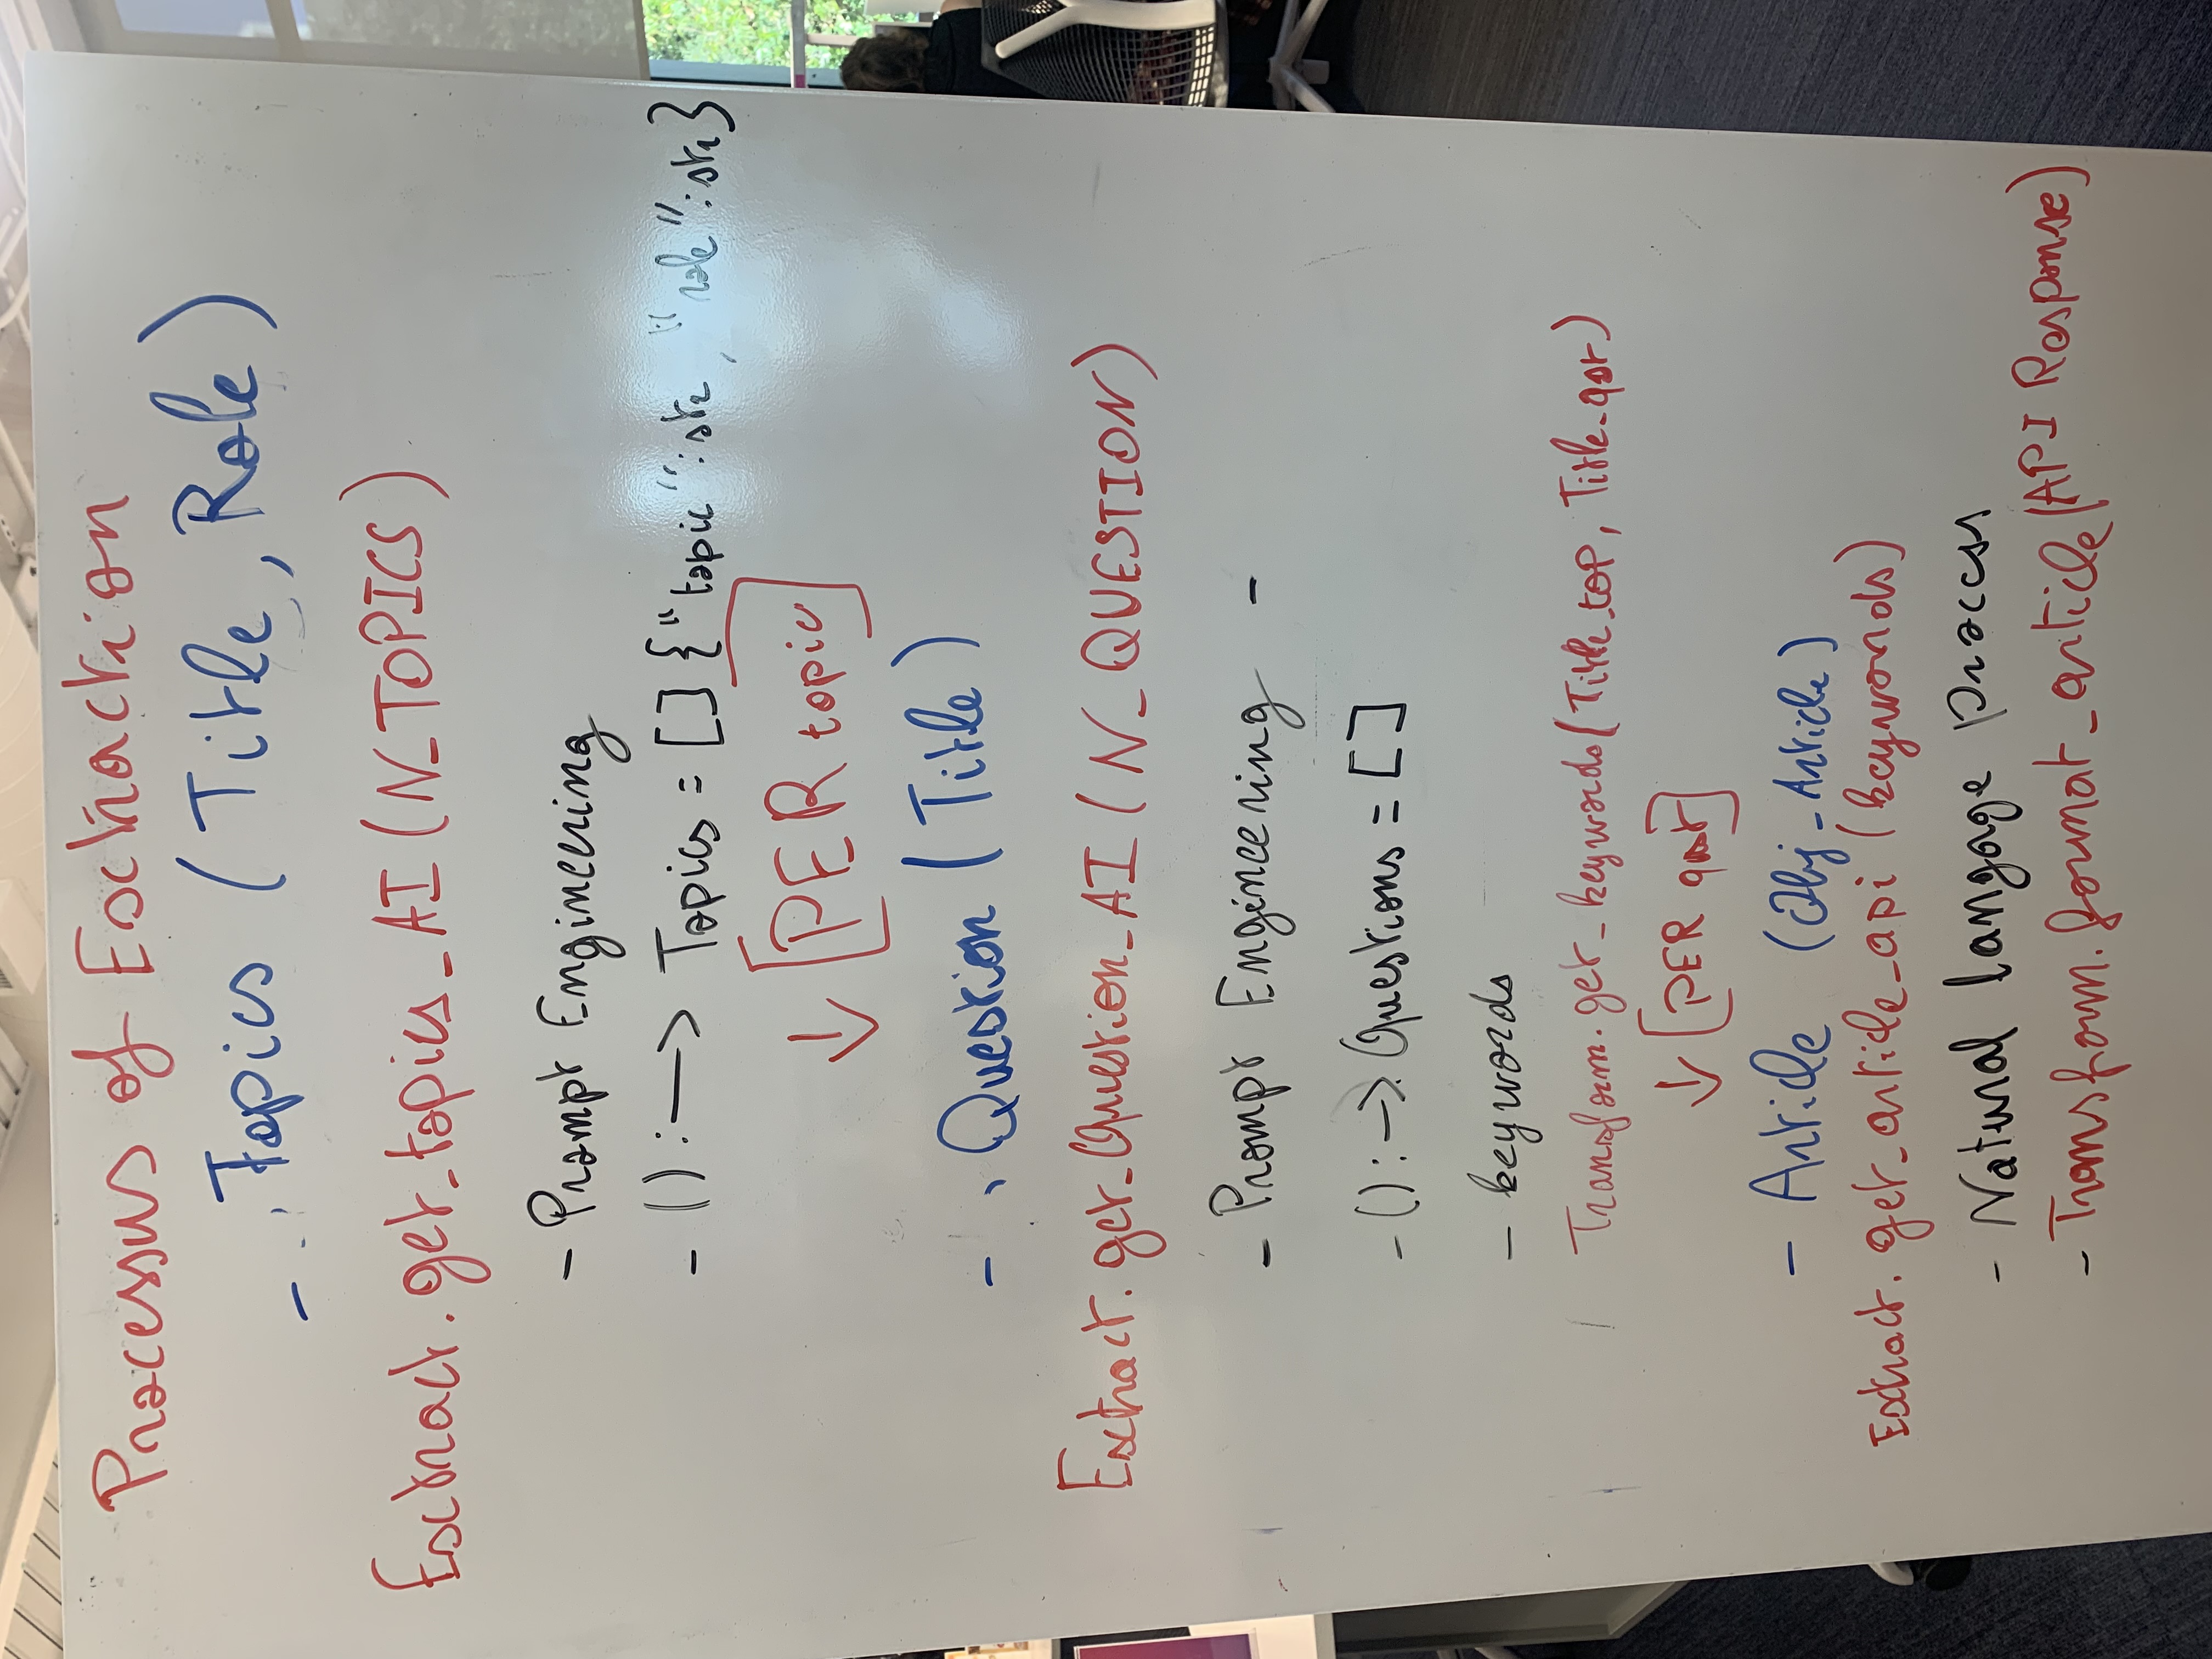 Processus of Exctraction
- Topics (Title, Role)
Exctract.get_topics_AI(N_TOPICS)
- Prompt Engineering
- ():→ Topics = [] {"topic":str, "role":str}
↓ [PER topic]
- Question (Title)
Extract.get_Question_AI(N_QUESTION)
- Prompt Engineering -
- ():→ Questions = []
- keywords
Transform.get_keywords(Title_top, Title_qst)
↓ [PER qst]
- Article (Obj_Article)
Extract.get_article_api (keywords)
- Natural langage process
- Transform.format_article(API Response)